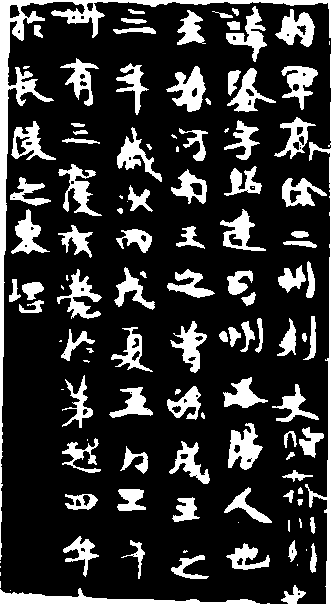 軍齊徐二州刺史贈齊州刺史
諱鑒字紹達司州洛陽人也
玄孫河南王之曾孫成王之
三年歲次丙戌夏五月壬午
卌有三寢疾薨於第越四年
於長陵之東堽